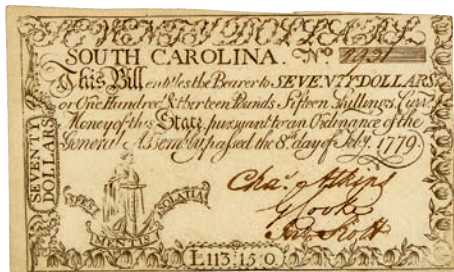 SEVENTY DOLLARS
SOUTH CAROLINA. Nº 2921
This Bill entitles the Bearer to SEVENTY DOLLARS,
or One Hundred & thirteen Pounds Fifteen Shillings, Curr.
Money of this State, pursuant to an Ordinance of the
General Assembly passed the 8th day of Feby. 1779.
SEVENTY
DOLLARS
SPES
MENTIS
SOLATIA
Chas. Atkins
Cooke
Scott
L113:15:0